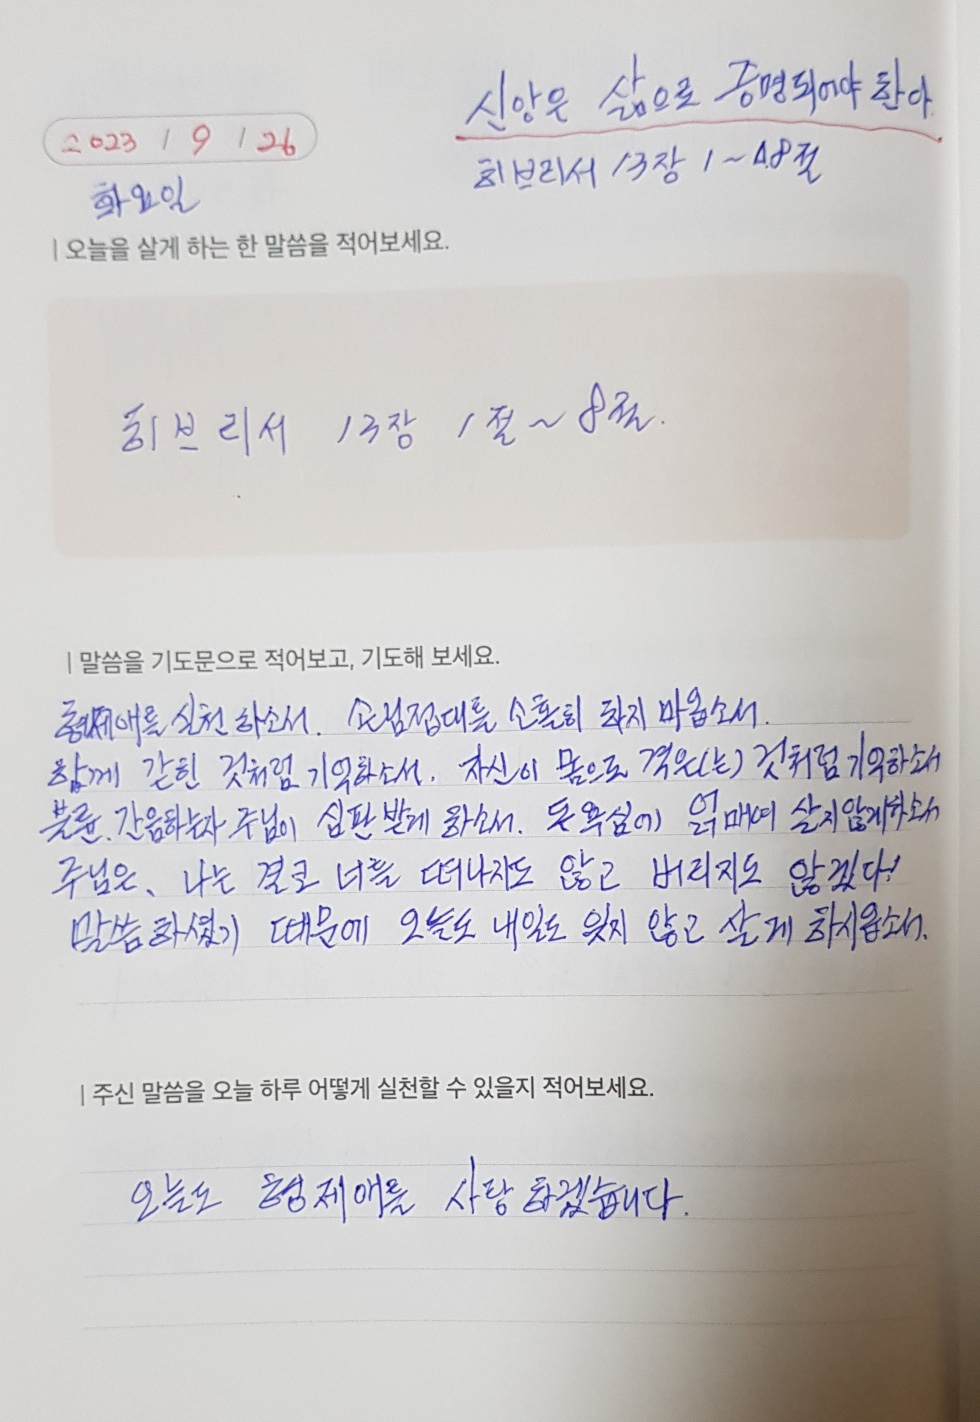 신앙은 삶으로 증명되어야 한다.
2023 / 9 / 26
히브리서 13장 1~8절
화요일
| 오늘을 살게 하는 한 말씀을 적어보세요.
히브리서 13장 1절~8절.
| 말씀을 기도문으로 적어보고, 기도해 보세요.
형제애를 실천 하소서. 손님접대를 소홀히 하지 마옵소서.
함께 갇힌 것처럼 기억하소서. 자신이 몸으로 격은(는) 것처럼 기억하소서
불륜. 간음하는자 주님이 심판 받게 하소서. 돈 욕심에 얽매여 살지않게하소서
주님은, 나는 결코 너를 떠나지도 않고 버리지도 않겠다!
말씀하셨기 때문에 오늘도 내일도 잊지 않고 살게 하시옵소서.
| 주신 말씀을 오늘 하루 어떻게 실천할 수 있을지 적어보세요.
오늘도 형제애를 사랑하겠습니다.